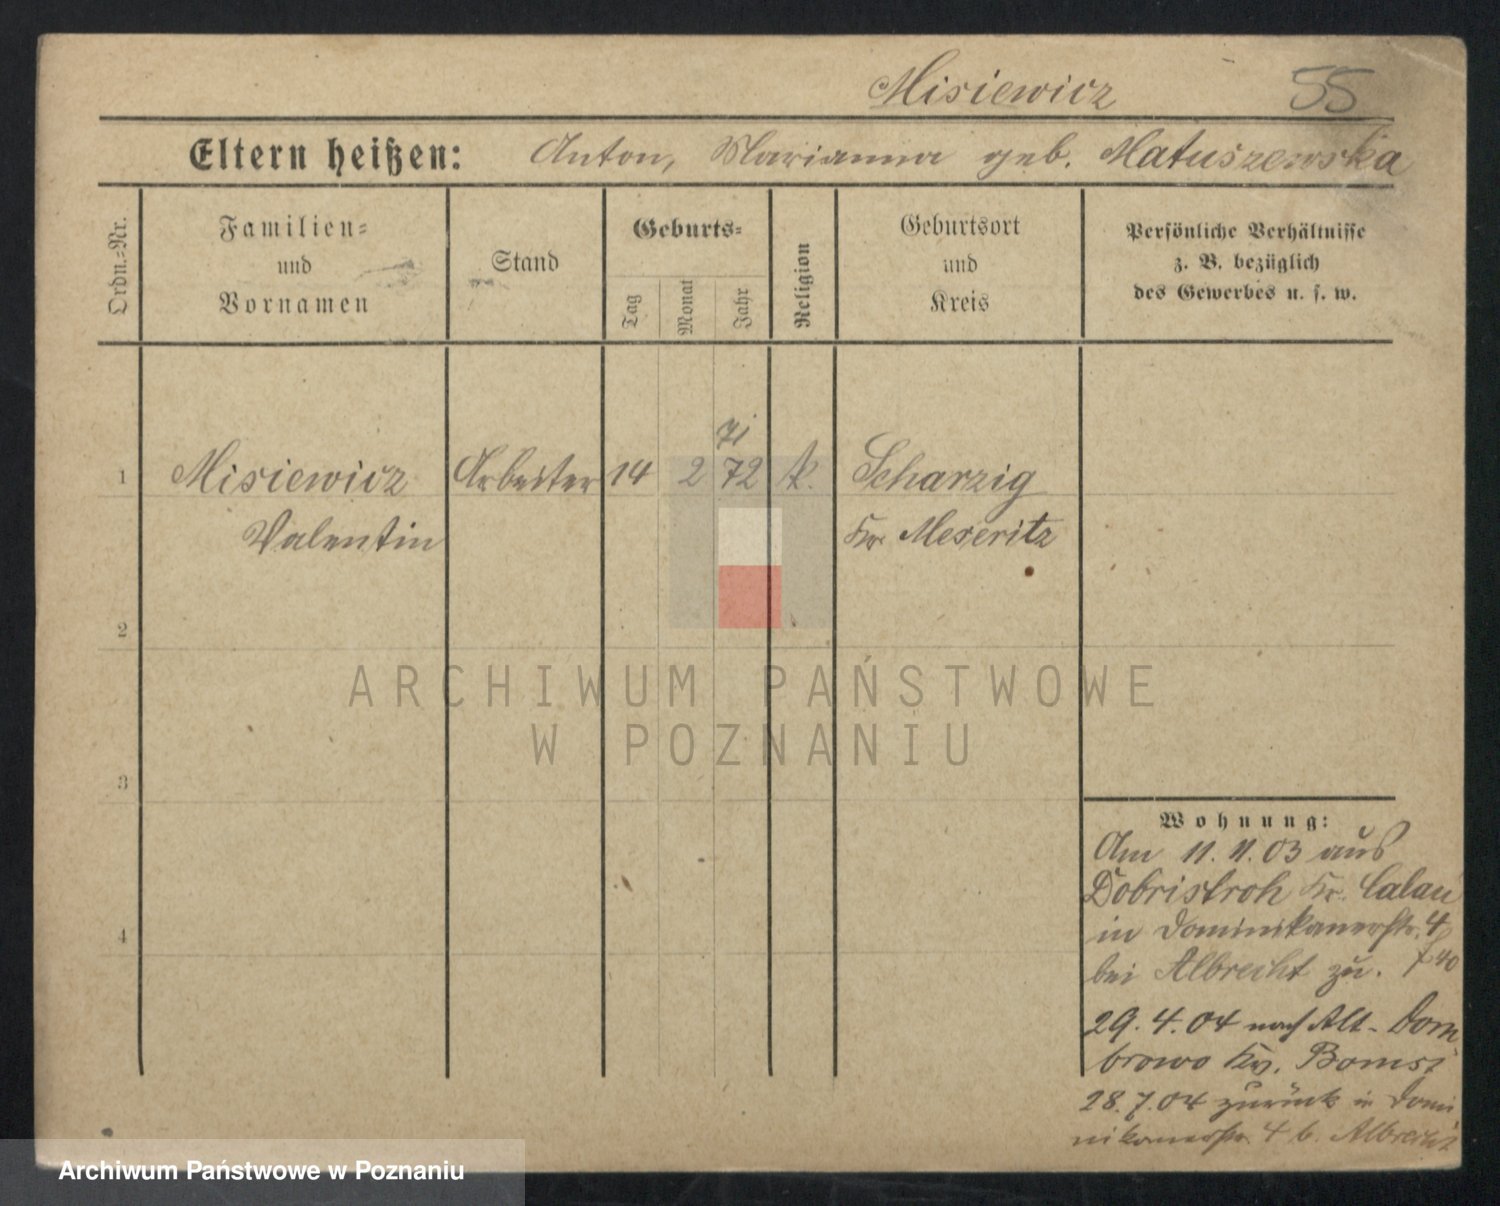 Misiewicz 55
Eltern heißen: Anton, Marianna geb. Matuszewska
Ordn.-Nr.
Familien-
und
Vornamen
Stand
Geburts-
Tag
Monat
Jahr
Religion
Geburtsort
und
Kreis
Persönliche Verhältnisse
z. B. bezüglich
des Gewerbes u. s. w.
71
1 Misiewicz Arbeiter 14 2 72 k. Scharzig
Valentin Kr. Meseritz
2
3
4
ARCHIWUM PAŃSTWOWE
W POZNANIU
Wohnung:
Am 11. 11. 03 aus
Dobristroh Kr. Calau
in Dominikanerstr. 4
bei Albrecht zu.
29. 4. 04 nach Alt-Dom
browo Kr. Bomst
28. 7. 04 zurück in Domi
nikanerstr. 4 b. Albrecht
Archiwum Państwowe w Poznaniu